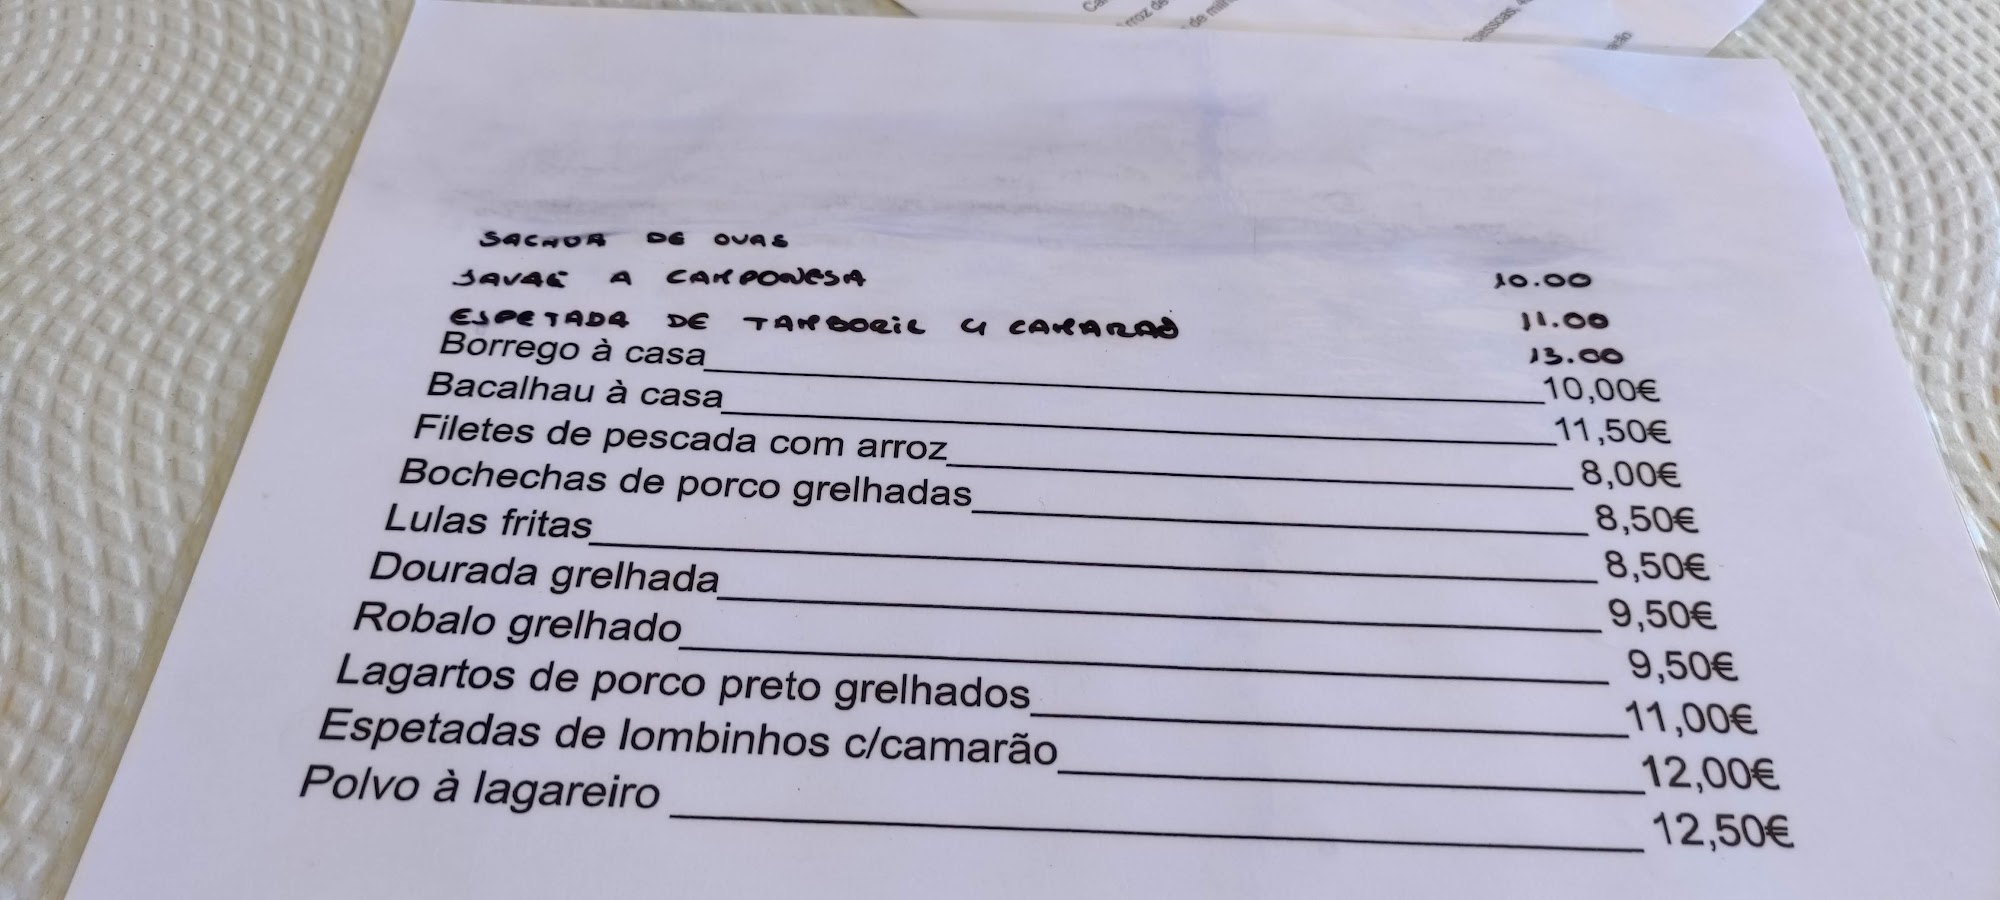 SACHOA DE OVAS 10.00
JAVAE A CAMPONESA 11.00
ESPETADA DE TAMBORIL C/ CAMARAO 13.00
Borrego à casa 10,00€
Bacalhau à casa 11,50€
Filetes de pescada com arroz 8,00€
Bochechas de porco grelhadas 8,50€
Lulas fritas 8,50€
Dourada grelhada 9,50€
Robalo grelhado 9,50€
Lagartos de porco preto grelhados 11,00€
Espetadas de lombinhos c/camarão 12,00€
Polvo à lagareiro 12,50€